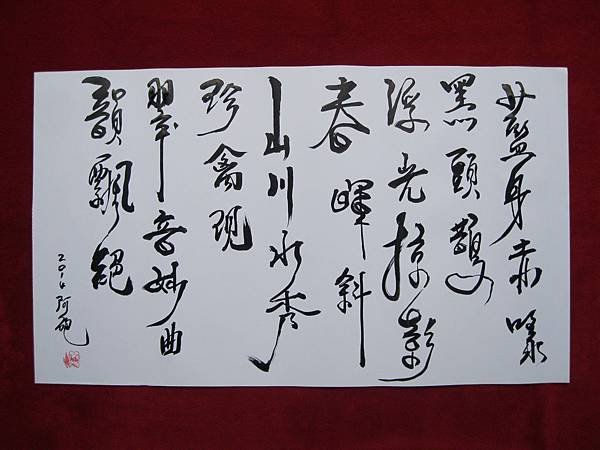 藍身赤喙
黑頭鵲
浮光掠影
春暉斜
山川水秀
珍禽現
翠音妙曲
韻飄
2014 阿